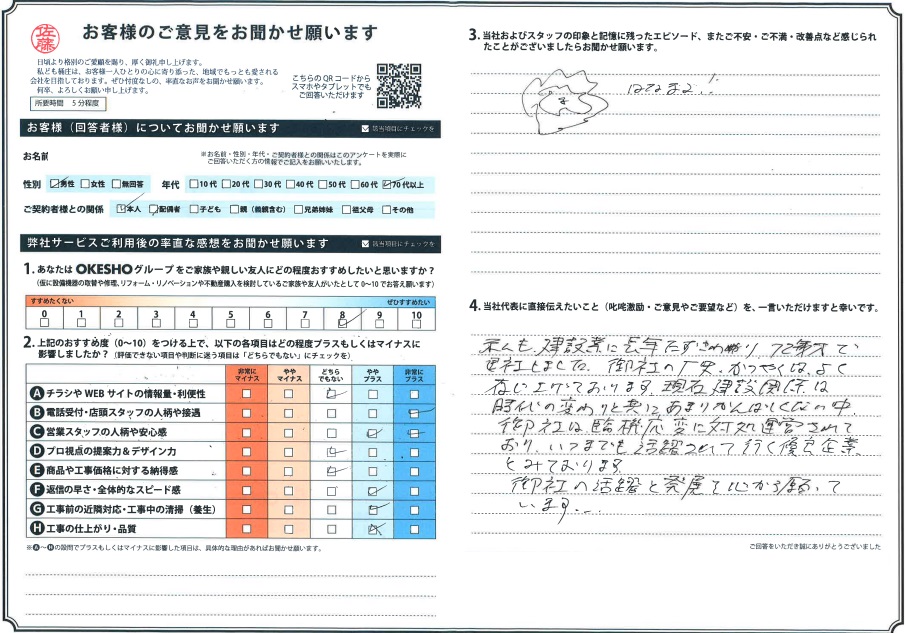 佐藤
お客様のご意見をお聞かせ願います
日頃より格別のご愛顧を賜り、厚く御礼申し上げます。
私ども桶庄は、お客様一人ひとりの心に寄り添った、地域でもっとも愛される
会社を目指しております。ぜひ忖度なしの、率直なお声をお聞かせください。
何卒、よろしくお願い申し上げます。
所要時間 5分程度
こちらのQRコードから
スマホやタブレットでも
ご回答いただけます
お客様(回答者様)についてお聞かせ願います
該当項目にチェックを
お名前
※お名前・性別・年代・ご契約者様との関係はこのアンケートを実際に
ご回答いただく方の情報でご記入をお願いいたします。
性別 男性 女性 無回答 年代 10代 20代 30代 40代 50代 60代 70代以上
ご契約者様との関係 本人 配偶者 子ども 親(義親含む) 兄弟姉妹 祖父母 その他
弊社サービスご利用後の率直な感想をお聞かせ願います
該当項目にチェックを
1. あなたは OKESHO グループをご家族や親しい友人にどの程度おすすめしたいと思いますか?
(仮に設備機器の取替や修理、リフォーム・リノベーションや不動産購入を検討しているご家族や友人がいたとして0〜10でお答え願います)
すすめたくない ぜひすすめたい
0 1 2 3 4 5 6 7 8 9 10
2. 上記のおすすめ度(0〜10)をつける上で、以下の各項目はどの程度プラスもしくはマイナスに
影響しましたか?(評価できない項目や判断に迷う項目は「どちらでもない」にチェックを)
非常にマイナス ややマイナス どちらでもない ややプラス 非常にプラス
A チラシやWEBサイトの情報量・利便性
B 電話受付・店頭スタッフの人柄や接遇
C 営業スタッフの人柄や安心感
D プロ視点の提案力&デザイン力
E 商品や工事価格に対する納得感
F 返信の早さ・全体的なスピード感
G 工事前の近隣対応・工事中の清掃(養生)
H 工事の仕上がり・品質
※A〜Hの設問でプラスもしくはマイナスに影響した項目は、具体的な理由があればお聞かせ願います。
3. 当社およびスタッフの印象と記憶に残ったエピソード、またご不安・ご不満・改善点など感じられ
たことがございましたらお聞かせ願います。
はなまる!!
4. 当社代表に直接伝えたいこと(叱咤激励・ご意見やご要望など)を、一言いただけますと幸いです。
私も建設業に長年たずさわり 72才で
退社しました。御社の工夫、かつやくは、よく
存じ上げております。現在建設関係は
時代の変わりと共に、あまりかんばしくない中
御社は臨機応変に対処運営されて
おり、いつまでも活躍されて行く優良企業
とみております
御社の活躍と発展を心から願って
います....
ご回答をいただき誠にありがとうございました